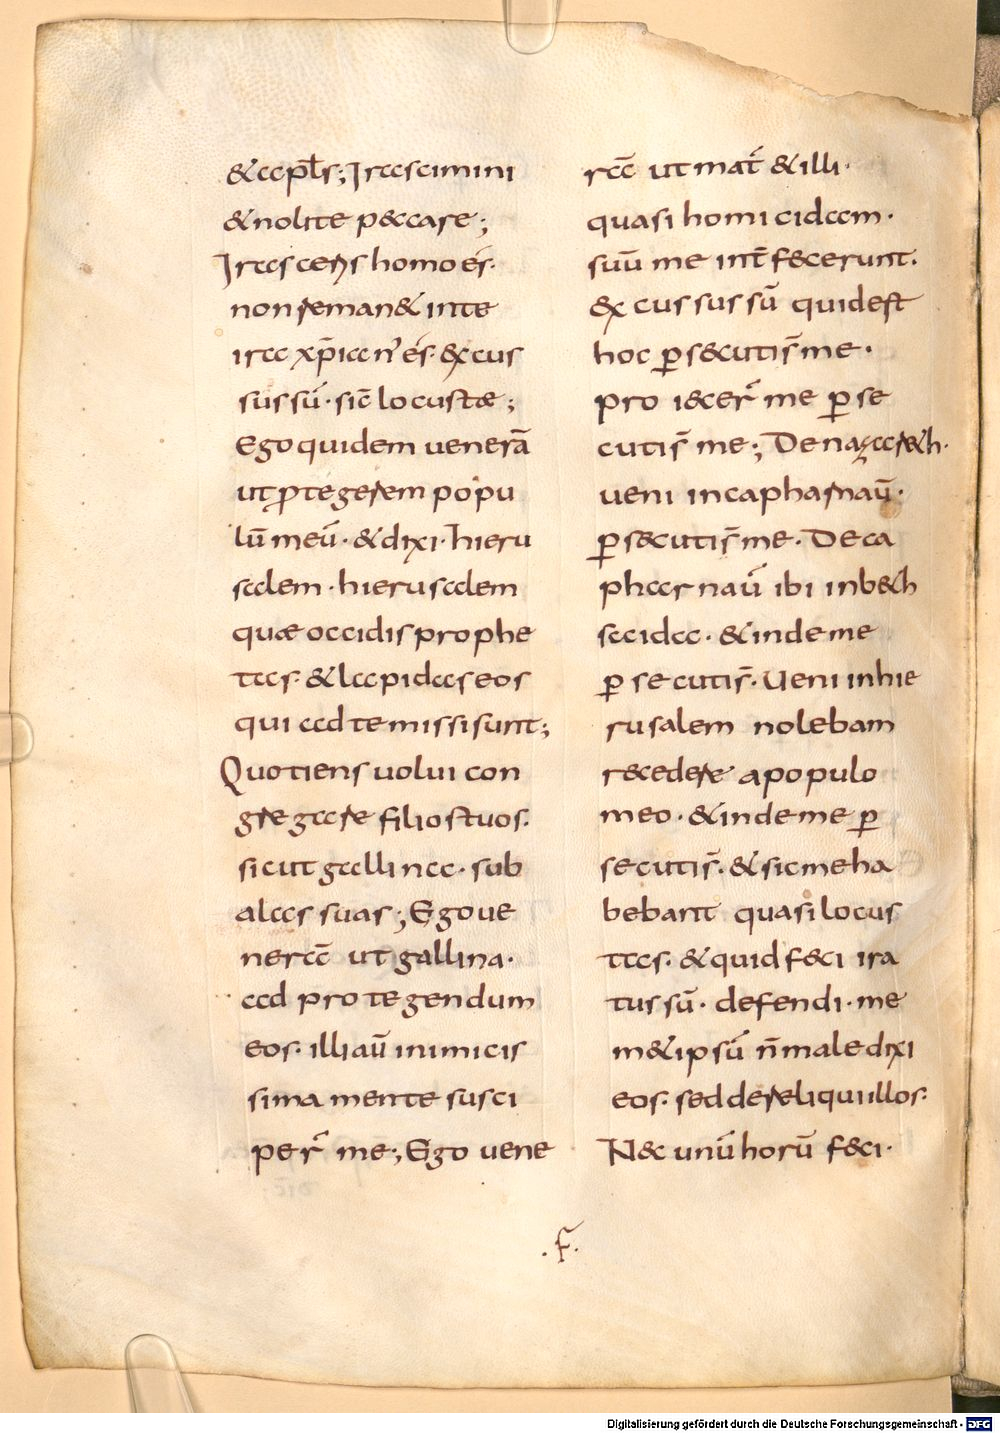 & apłs; Irascimini
& nolite p&care;
Irasceris homo és.
non reman& in te
ira xp̄ian' és. &xcus
sus sū. sic̄ locustæ;
Ego quidem venerā
ut protegerem popu
lū meū. & dixi. hieru
salem. hierusalem
quæ occidis prophe
tas. & lapidas eos
qui ad te missi sunt;
Quotiens uolui con
gregare filios tuos.
sicut gallina. sub
alas suas; Ego ue
neram̄ ut gallina.
ad protegendum
eos. illi aū inimicis
sima mente susci
per̄ me; Ego vene
rā ut mat̄ & illi.
quasi homicidam.
suū me int̄fecerunt.
&xcussus sū quid est
hoc persecutis̄ me.
proiecer̄ me perse
cutis̄ me; De nazar&h.
ueni in capharnaū.
persecutis̄ me. De ca
pharnaū ibi in b&h
saida. & inde me
persecutis̄. Ueni in hie
rusalem nolebam
recedere a populo
meo. & inde me per
secutis̄. & sic me ha
bebant quasi locus
tas. & quid feci ira
tus sū. defendi. me
m&ipsū n̄ maledixi
eos. sed dereliqui illos.
Nec unū horū feci.
.F.
Digitalisierung gefördert durch die Deutsche Forschungsgemeinschaft - DFG